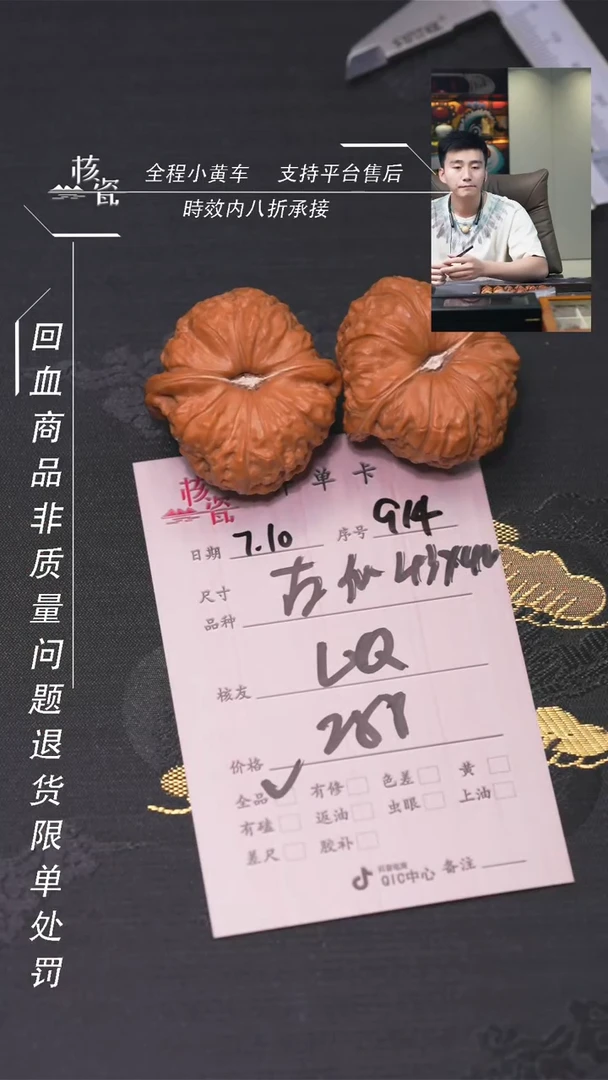 核瓷
全程小黄车 支持平台售后
時效内八折承接
回血商品非质量问题退货限单处罚
核瓷 单卡
日期 7.10 序号 914
尺寸
品种
核友 LQ
价格
全品 ✓ 有修 色差 黄
有磕 返油 虫眼 上油
差尺 胶补
QIC中心 备注